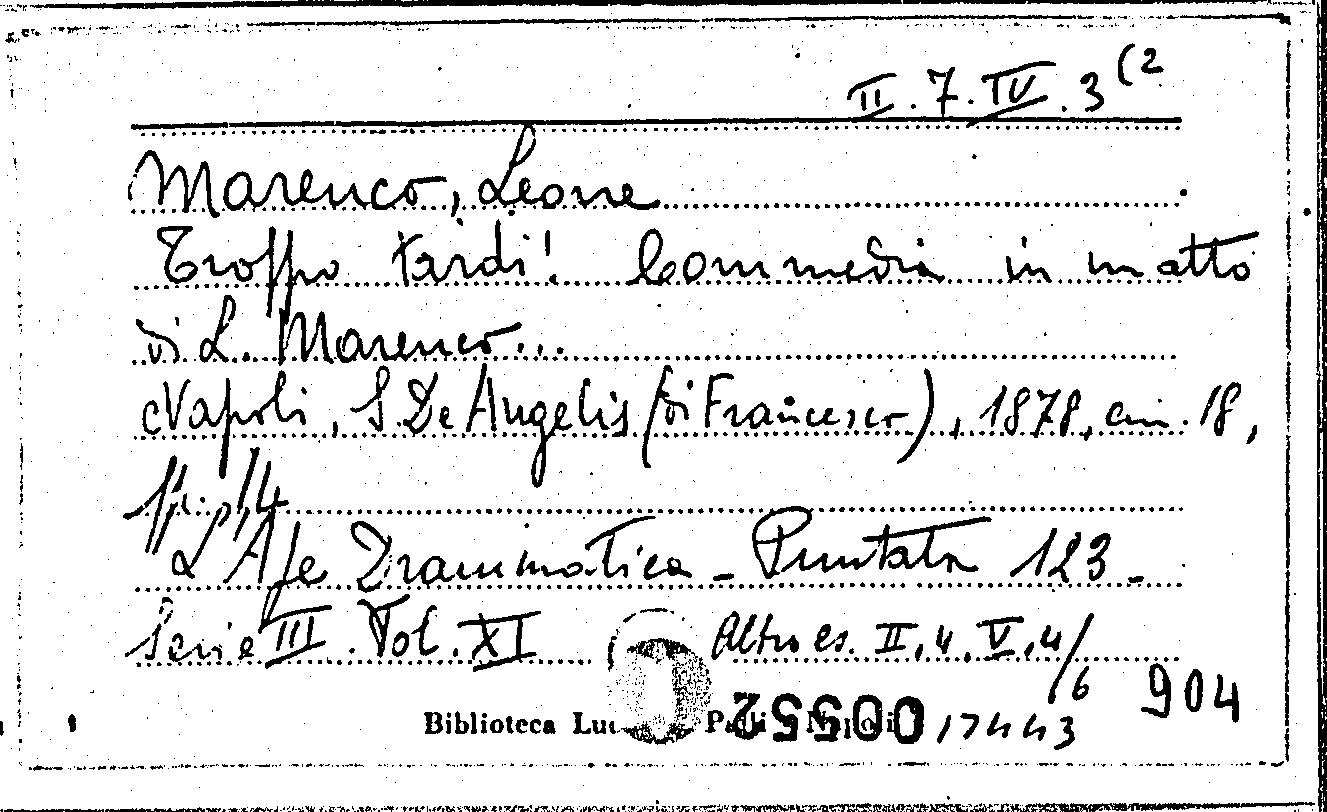 II.7.IV.3(2
Marenco, Leone
Troppo tardi! Commedia in un atto
di L. Marenco...
Napoli, S. De Angelis (di Francesco), 1878, cm. 18,
pp. 14
L'Ape Drammatica - Puntata 123 -
Serie III. Vol. XI
Altro es. II.4.V.4/6
904
Biblioteca Luc Palli Napoli
00552
17443